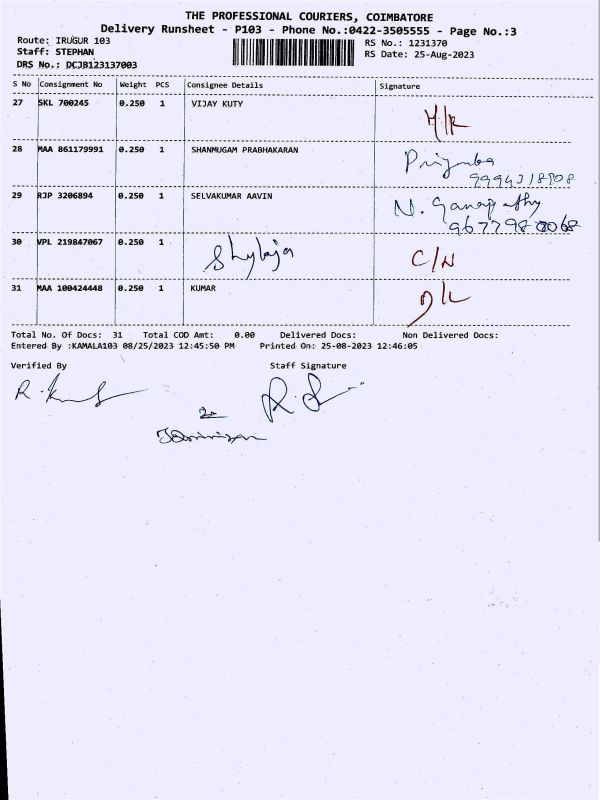 THE PROFESSIONAL COURIERS, COIMBATORE
Delivery Runsheet - P103 - Phone No.:0422-3505555 - Page No.:3
Route: IRUGUR 103 RS No.: 1231370
Staff: STEPHAN RS Date: 25-Aug-2023
DRS No.: DCJB123137003
S No Consignment No Weight PCS Consignee Details Signature
27 SKL 700245 0.250 1 VIJAY KUTY
28 MAA 861179991 0.250 1 SHANMUGAM PRABHAKARAN
29 RJP 3206894 0.250 1 SELVAKUMAR AAVIN N. Ganapathy
30 VPL 219847067 0.250 1 Shylaja C/N
31 MAA 100424448 0.250 1 KUMAR
Total No. Of Docs: 31 Total COD Amt: 0.00 Delivered Docs: Non Delivered Docs:
Entered By :KAMALA103 08/25/2023 12:45:50 PM Printed On: 25-08-2023 12:46:05
Verified By Staff Signature